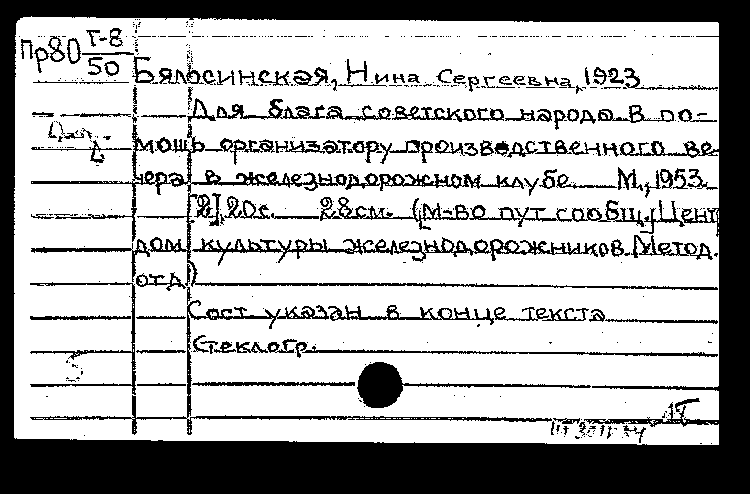 Пр80 Т-8/50
Бялосинская, Нина Сергеевна, 1923
Для блага советского народа. В по-
мощь организатору производственного ве-
чера в железнодорожном клубе. М., 1953.
[2], 20с. 28см. (М-во пут. сообщ. Центр.
дом культуры железнодорожников. Метод.
отд.)
Сост. указан в конце текста
Стеклогр.
5